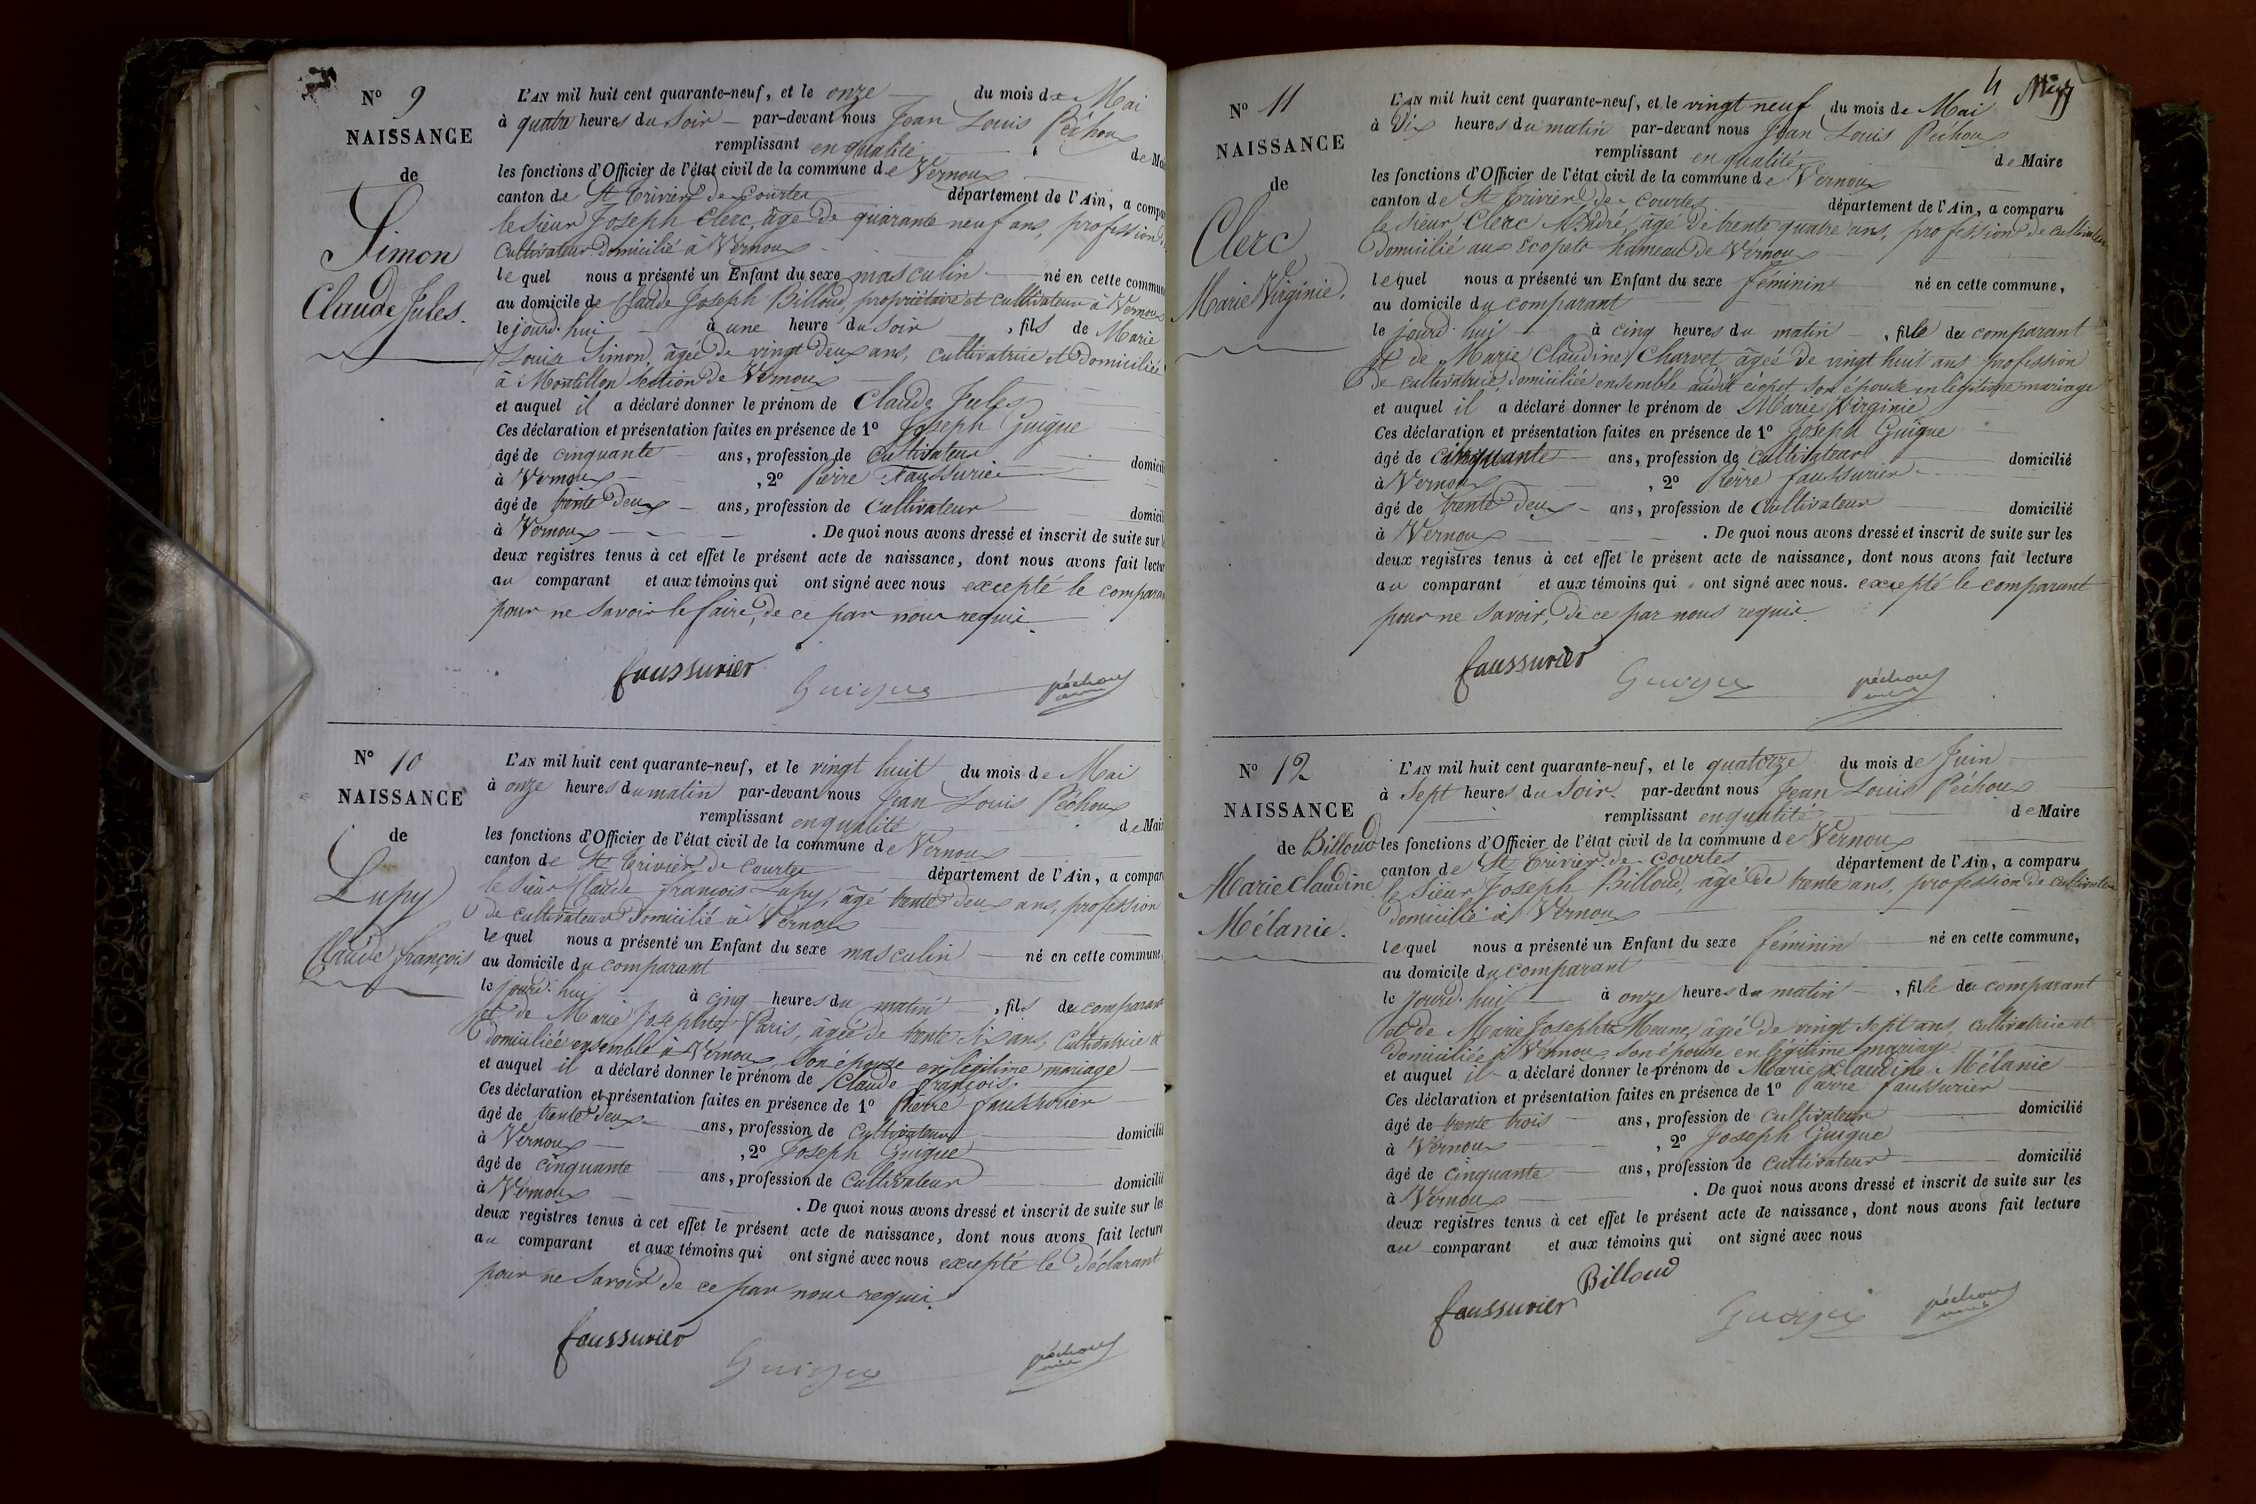 N° 9
NAISSANCE
de
Simon
Claude Jules.
L'AN mil huit cent quarante-neuf, et le onze du mois de Mai
à quatre heures du Soir par-devant nous Jean Louis Péchoux
remplissant en qualité de Mai
les fonctions d'Officier de l'état civil de la commune de Vernoux
canton de St Trivier de Courtes département de l'Ain, a compar
le sieur Joseph Clerc, âgé de quarante neuf ans, profession de
cultivateur domicilié à Vernoux
lequel nous a présenté un Enfant du sexe masculin né en cette commune
au domicile de Claude Joseph Billoud, propriétaire et cultivateur à Vernoux
le jourd'hui à une heure du soir , fils de Marie
Louise Simon, âgée de vingt deux ans, cultivatrice et domiciliée
à Montillon section de Vernoux
et auquel il a déclaré donner le prénom de Claude Jules
Ces déclaration et présentation faites en présence de 1° Joseph Guigue
âgé de cinquante ans, profession de cultivateur domicili
à Vernoux , 2° Pierre Faussurier
âgé de trente deux ans, profession de Cultivateur domicil
à Vernoux . De quoi nous avons dressé et inscrit de suite sur l
deux registres tenus à cet effet le présent acte de naissance, dont nous avons fait lectur
au comparant et aux témoins qui ont signé avec nous excepté le comparan
pour ne savoir le faire, de ce par nous requis.
faussurier Guigue péchoux
N° 10
NAISSANCE
de
Lupy
Claude françois
L'AN mil huit cent quarante-neuf, et le vingt huit du mois de Mai
à onze heures du matin par-devant nous Jean Louis Péchoux
remplissant en qualité de Mair
les fonctions d'Officier de l'état civil de la commune de Vernoux
canton de St Trivier de Courtes département de l'Ain, a compar
le sieur Claude françois Lupy, âgé trente deux ans, profession
de cultivateur domicilié à Vernoux
lequel nous a présenté un Enfant du sexe masculin né en cette commune,
au domicile du comparant
le jourd'hui à cinq heures du matin , fils du comparant
et de Marie Josephte Paris, âgée de trente six ans, Cultivatrice et
domiciliée ensemble à Vernoux, son épouse en légitime mariage
et auquel il a déclaré donner le prénom de Claude françois.
Ces déclaration et présentation faites en présence de 1° Pierre faussurier
âgé de trente deux ans, profession de cultivateur domicilié
à Vernoux , 2° Joseph Guigue
âgé de cinquante ans, profession de Cultivateur domicilié
à Vernoux . De quoi nous avons dressé et inscrit de suite sur les
deux registres tenus à cet effet le présent acte de naissance, dont nous avons fait lecture
au comparant et aux témoins qui ont signé avec nous excepté le déclarant
pour ne savoir de ce par nous requis.
faussurier Guigue péchoux
4
N° 11
NAISSANCE
de
Clerc
Marie Virginie.
L'AN mil huit cent quarante-neuf, et le vingt neuf du mois de Mai
à Dix heures du matin par-devant nous Jean Louis Péchoux
remplissant en qualité de Maire
les fonctions d'Officier de l'état civil de la commune de Vernoux
canton de St Trivier de Courtes département de l'Ain, a comparu
le sieur Clerc André, âgé de trente quatre ans, profession de cultivateur
domicilié aux Ecopets hameau de Vernoux
lequel nous a présenté un Enfant du sexe féminin né en cette commune,
au domicile du comparant
le jourd'hui à cinq heures du matin , fille du comparant
et de Marie Claudine Charvet, âgée de vingt huit ans profession
de cultivatrice, domiciliée ensemble audit écopet son épouse en légitime mariage
et auquel il a déclaré donner le prénom de Marie Virginie
Ces déclaration et présentation faites en présence de 1° Joseph Guigue
âgé de cinquante ans, profession de cultivateur domicilié
à Vernoux , 2° Pierre faussurier
âgé de trente deux ans, profession de Cultivateur domicilié
à Vernoux . De quoi nous avons dressé et inscrit de suite sur les
deux registres tenus à cet effet le présent acte de naissance, dont nous avons fait lecture
au comparant et aux témoins qui ont signé avec nous. excepté le comparant
pour ne savoir, de ce par nous requis.
faussurier Guigue péchoux
N° 12
NAISSANCE
de Billoud
Marie Claudine
Mélanie.
L'AN mil huit cent quarante-neuf, et le quatorze du mois de Juin
à Sept heures du Soir. par-devant nous Jean Louis Péchoux
remplissant en qualité de Maire
les fonctions d'Officier de l'état civil de la commune de Vernoux
canton de St Trivier de Courtes département de l'Ain, a comparu
le sieur Joseph Billoud, âgé de trente ans, profession de cultivateur
domicilié à Vernoux
lequel nous a présenté un Enfant du sexe féminin né en cette commune,
au domicile du comparant
le jourd'hui à onze heures du matin , fille du comparant
et de Marie Josephte Meunes âgée de vingt sept ans, cultivatrice et
domiciliée à Vernoux, son épouse en légitime mariage
et auquel il a déclaré donner le prénom de Marie Claudine Mélanie
Ces déclaration et présentation faites en présence de 1° Pierre faussurier
âgé de trente trois ans, profession de cultivateur domicilié
à Vernoux , 2° Joseph Guigue
âgé de cinquante ans, profession de cultivateur domicilié
à Vernoux . De quoi nous avons dressé et inscrit de suite sur les
deux registres tenus à cet effet le présent acte de naissance, dont nous avons fait lecture
au comparant et aux témoins qui ont signé avec nous
faussurier Billoud Guigue péchoux